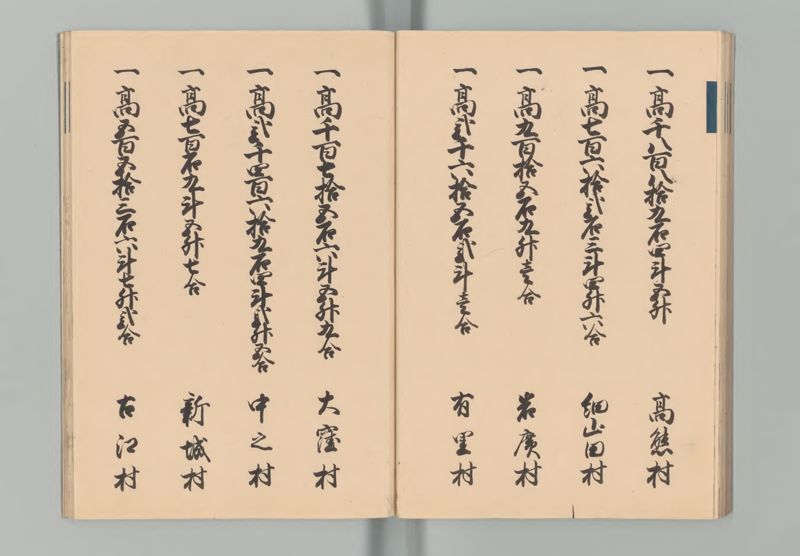 一高千八百八拾九石四斗五升 高熊村
一高七百六拾弐石三斗四升六合 細山田村
一高九百拾五石九升壱合 岩廣村
一高弐千六拾五石弐斗壱合 有里村
一高千百七拾五石六斗五升九合 大窪村
一高弐千四百六拾九石四斗弐升五合 中之村
一高七百石九斗五升七合 新城村
一高五百五拾三石六斗七升弐合 古江村